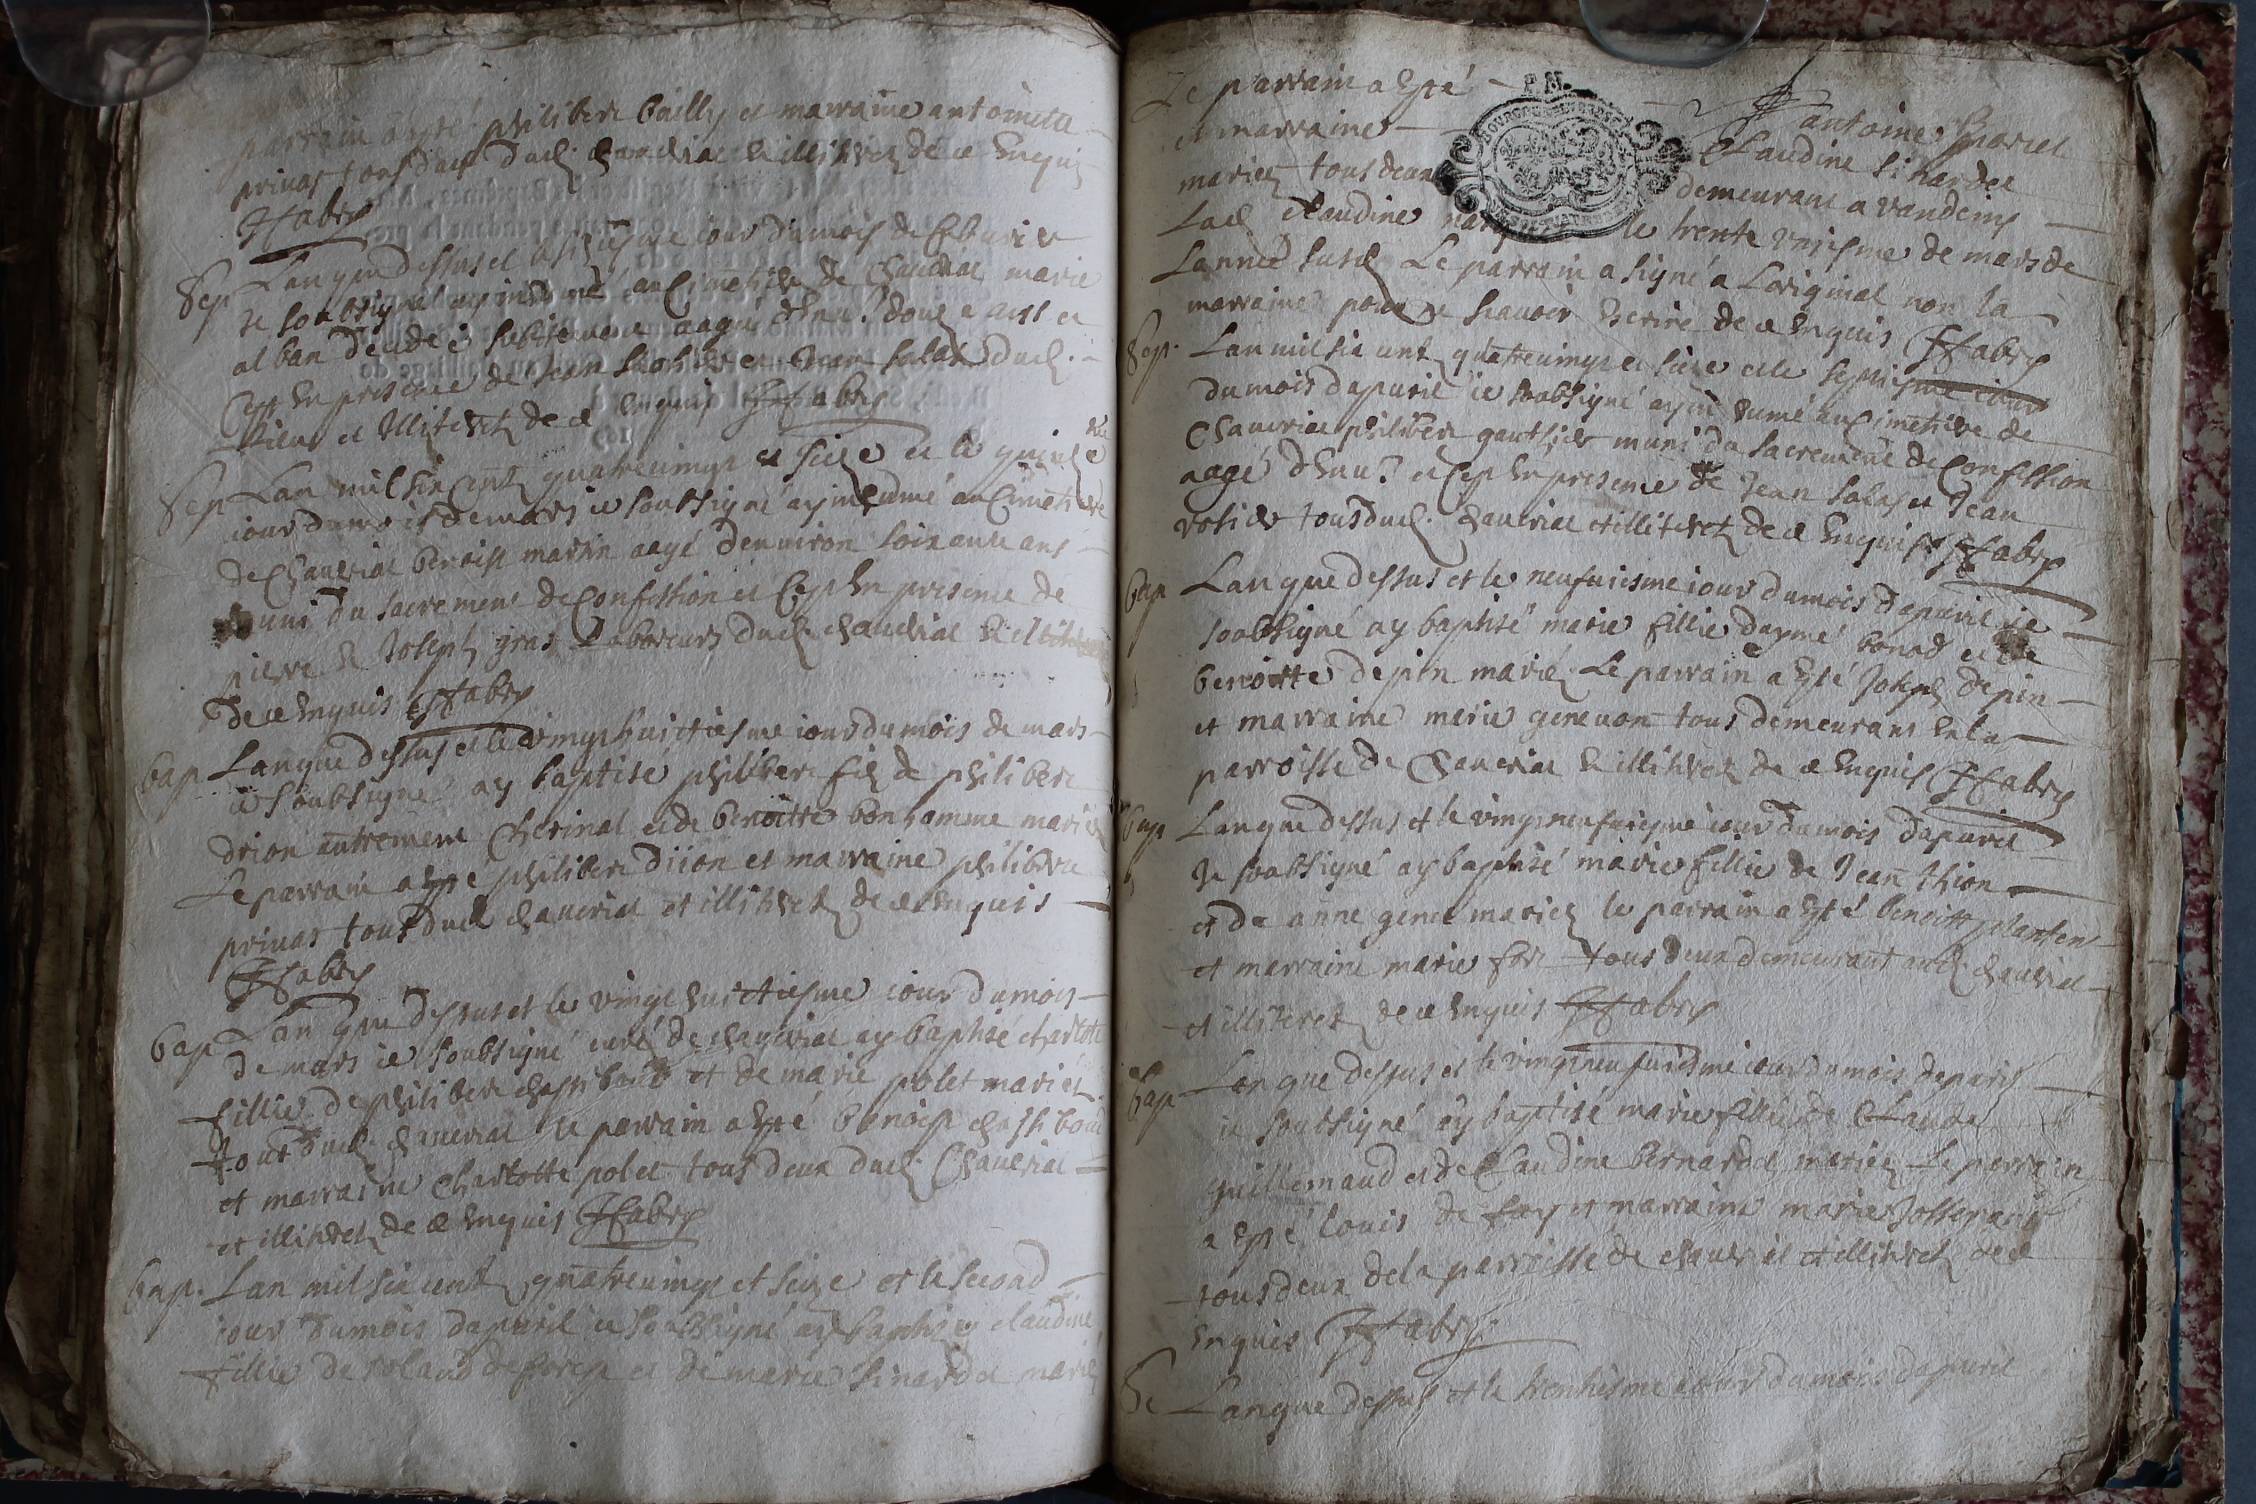 parrain a esté philiber bailly et marraine antoinette
privas tous deux dud. chaveriat et illiterez de ce enquis
FFabry
Sep Lan que dessus et le iour du mois de febvrier
Ie soubsigné ay inhumé au Cimetiere de Chaveriat marie
alban décédée subitement aagée d'env. douze ans et
Cest en presence de Jean et Jean salas dud.
lieu et illiterez de ce enquis FFabry
Sep Lan mil six cent quatrevingt et seize et le quinze
iour du mois de mars ie soubsigné ay inhumé au Cimetiere
de Chaveriat benoist martin aagé denviron soixante ans
muni du sacrement de Confession et Cest En presence de
pierre et Joseph gras Laboreurs dud. chaveriat et
de ce enquis FFabry
bap Lan que dessus et le vingt huictiesme iour du mois de mars
ie soubsigné ay baptisé philiber fils de philiber
drion autrement Cherinal et de benoitte bonhomme mariez
Le parrain a esté philiber diion et marraine philiberte
privas tous dud. chaveriat et illiterez de ce enquis
FFabry
bap Lan que dessus et le vingt huictiesme iour du mois
de mars ie soubsigné curé de chaveriat ay baptisé charlotte
fillie de philiber chassiboud et de marie polet mariez
tous dud. chaveriat le parrain a esté benoist chassiboud
et marraine Charlotte polet tous deux dud. Chaveriat
et illiterez de ce enquis FFabry
bap. Lan mil six cent quatrevingt et seize et le second
iour du mois dapuril ie soubsigné ay baptisé claudine
fillie de roland deforest et de marie sinardet mariez
Le parrain a esté antoine morel
et marraine Claudine sinardet
mariez tous deux demeurant a vandeins
Lad. Claudine le trente vniesme de mars de
Lannée susd. Le parrain a signé a Loriginal non la
marraine pour ne scavoir Escrire de ce enquis FFabry
Sep. Lan mil six cent quatrevingt et seize et le septiesme iour
du mois dapuril ie soubsigné ay in humé au Cimetiere de
Chaveriat philiber gauthier muni du sacrement de Confession
aagé d'env. et Cest En presence de Jean salas et Jean
rotier tous dud. chaveriat et illiterez de ce Enquis FFabry
bap Lan que dessus et le neufuiesme iour du mois dapuril ie
soubsigné ay baptisé marie fillie daymé bonod et de
benoitte depin mariez Le parrain a esté Joseph depin
et marraine marie genevon tous demeurans En la
parroisse de Chaveriat et illiterez de ce enquis FFabry
bap Lan que dessus et le vingt neufuiesme iour du mois dapuril
Ie soubsigné ay baptisé marie fillie de Jean thion
et de anne genet mariez le parrain a esté benoitt planten
et marraine marie fore tous deux demeurant aud. chaveriat
et illiterez de ce enquis FFabry
bap Lan que dessus et le vingt neufuiesme iour du mois dapuril
ie soubsigné ay baptisé marie fillie de Claude
guillemaud et de Claudine bernardet mariez Le parrain
a esté louis de fay et marraine marie Josserand
tous deux de la parroisse de chaveriat et illiterez de ce
enquis FFabry
Se Lan que dessus et le trentiesme iour du mois dapuril